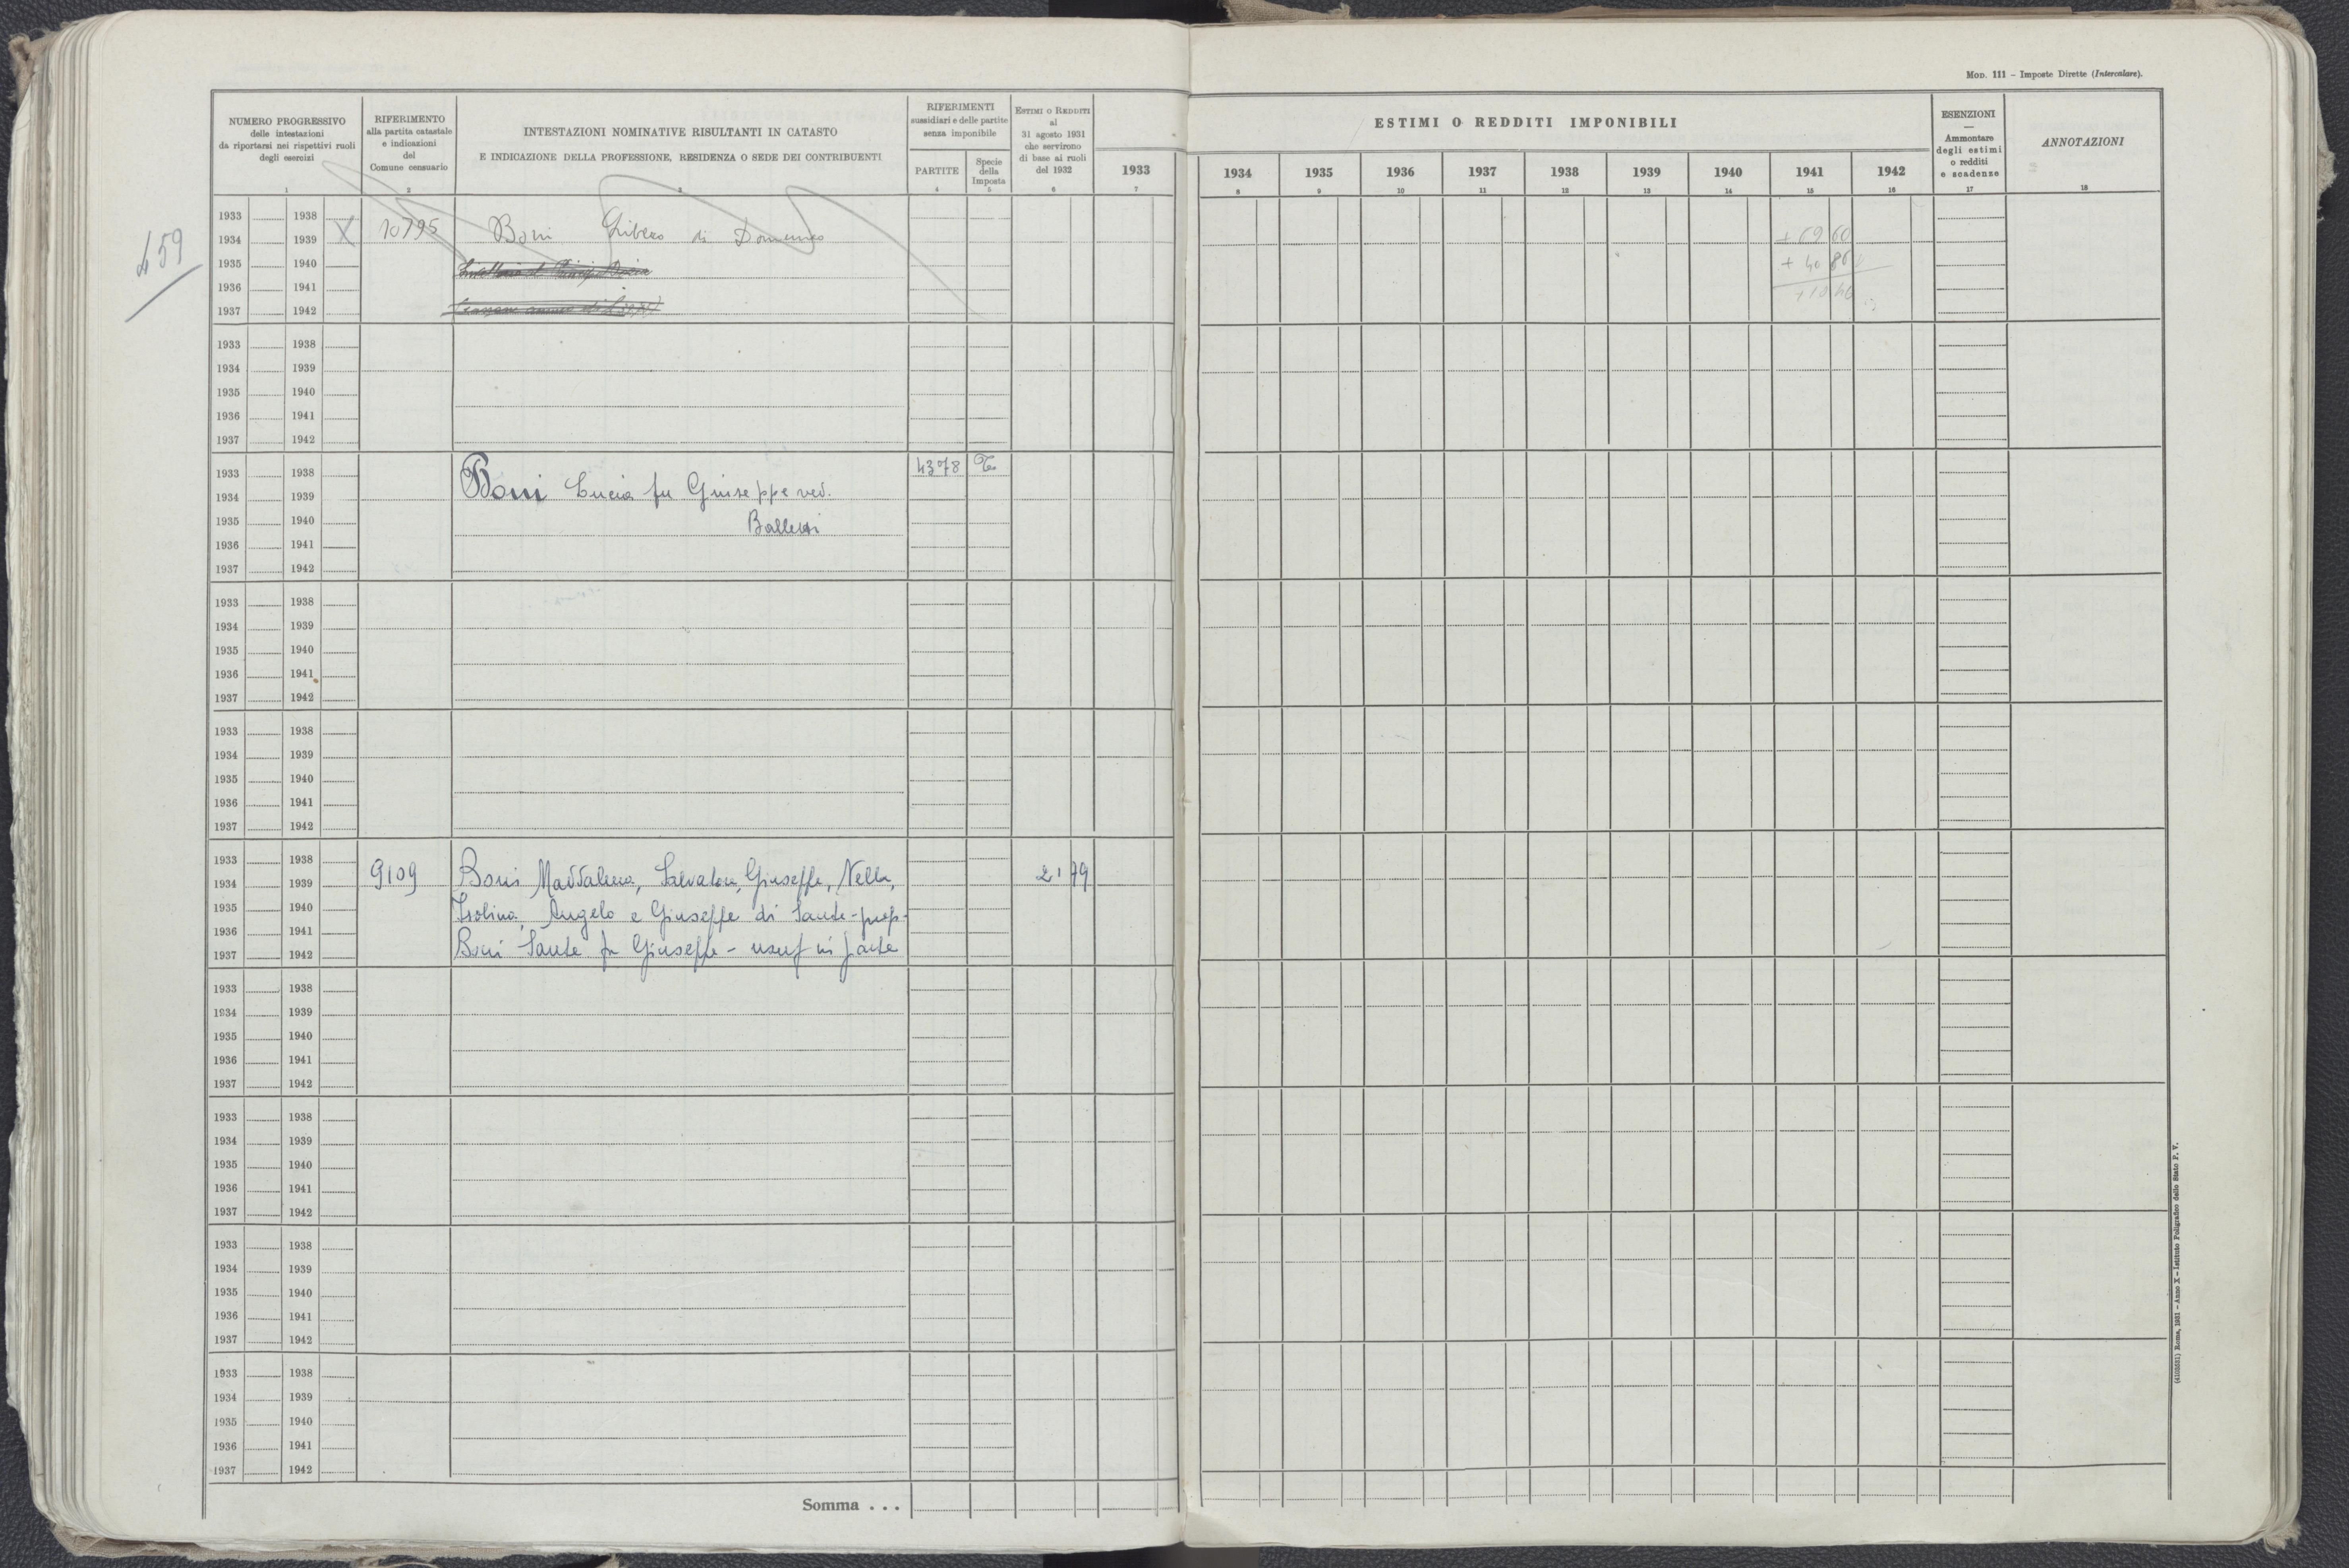 Mod. 111 – Imposte Dirette (Intercalare).
NUMERO PROGRESSIVO
delle intestazioni
da riportarsi nei rispettivi ruoli
degli esercizi
1
RIFERIMENTO
alla partita catastale
e indicazioni
del
Comune censuario
2
INTESTAZIONI NOMINATIVE RISULTANTI IN CATASTO
E INDICAZIONE DELLA PROFESSIONE, RESIDENZA O SEDE DEI CONTRIBUENTI
3
RIFERIMENTI
sussidiari e delle partite
senza imponibile
PARTITE
4
Specie
della
Imposta
5
Estimi o Redditi
al
31 agosto 1931
che servirono
di base ai ruoli
del 1932
6
1933
7
ESTIMI O REDDITI IMPONIBILI
1934 1935 1936 1937 1938 1939 1940 1941 1942
8 9 10 11 12 13 14 15 16
ESENZIONI
—
Ammontare
degli estimi
o redditi
e scadenze
17
ANNOTAZIONI
18
459
1933 1938
1934 1939 X 10795 Boni Libero di Domenico
1935 1940
1936 1941
1937 1942
1933 1938
1934 1939
1935 1940
1936 1941
1937 1942
1933 1938 4378
1934 1939 Boni Lucia fu Giuseppe ved.
1935 1940
1936 1941
1937 1942
1933 1938
1934 1939
1935 1940
1936 1941
1937 1942
1933 1938
1934 1939
1935 1940
1936 1941
1937 1942
1933 1938
1934 1939 9109 Boni Maddalena, Salvatore, Giuseppe, Nella, 21 79
1935 1940 Isolina, Angelo e Giuseppe di Sante - prop.
1936 1941
1937 1942 Boni Sante fu Giuseppe - usuf in parte
1933 1938
1934 1939
1935 1940
1936 1941
1937 1942
1933 1938
1934 1939
1935 1940
1936 1941
1937 1942
1933 1938
1934 1939
1935 1940
1936 1941
1937 1942
1933 1938
1934 1939
1935 1940
1936 1941
1937 1942
Somma . . .
Roma, 1931 – Anno X – Istituto Poligrafico dello Stato P. V.